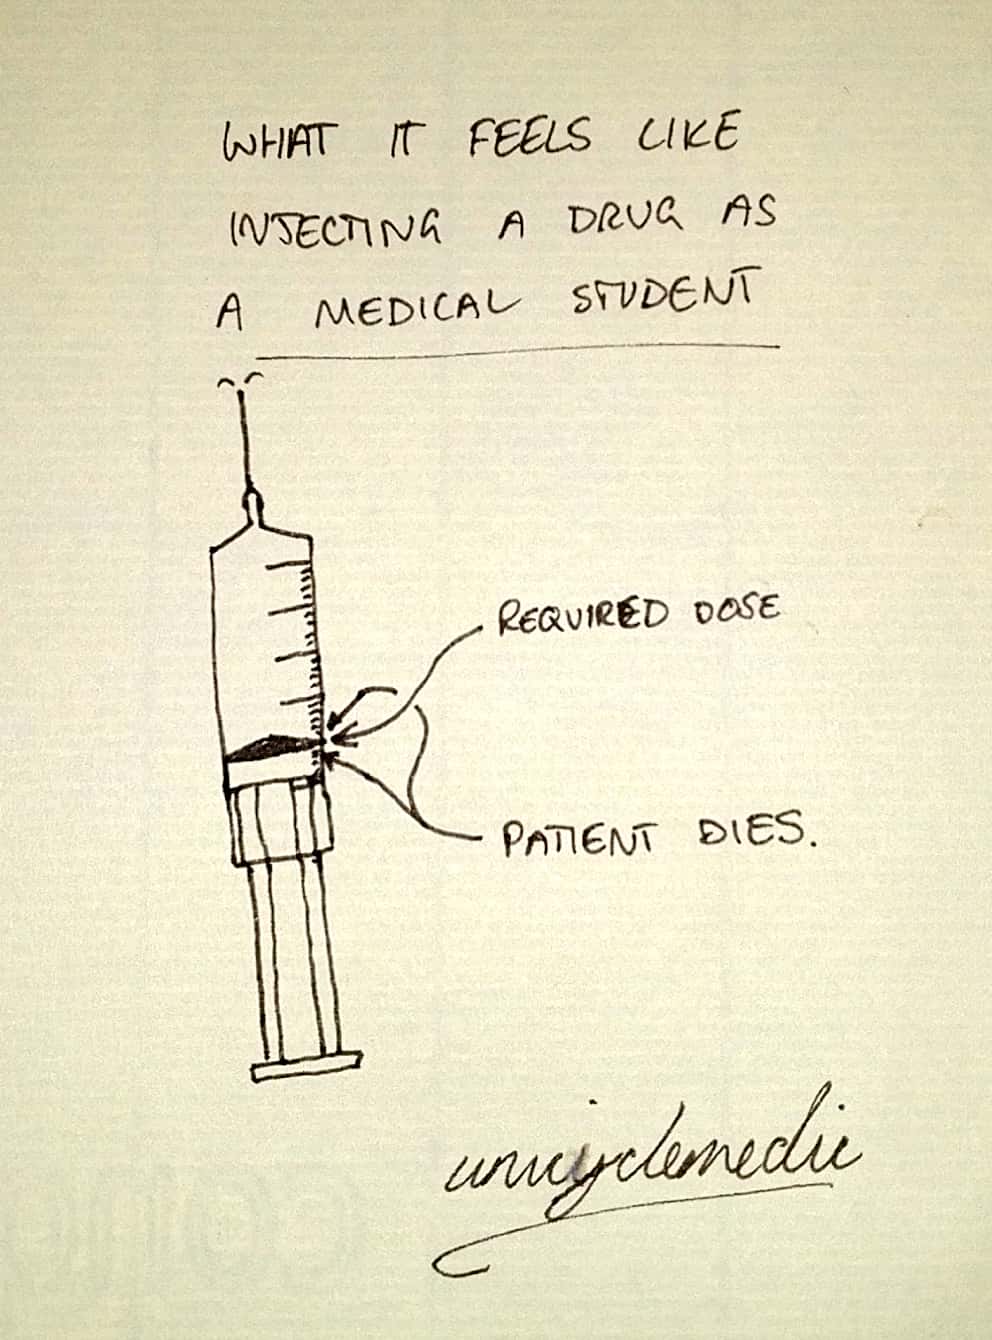 WHAT IT FEELS LIKE
INJECTING A DRUG AS
A MEDICAL STUDENT
REQUIRED DOSE
PATIENT DIES.
unicyclemedic